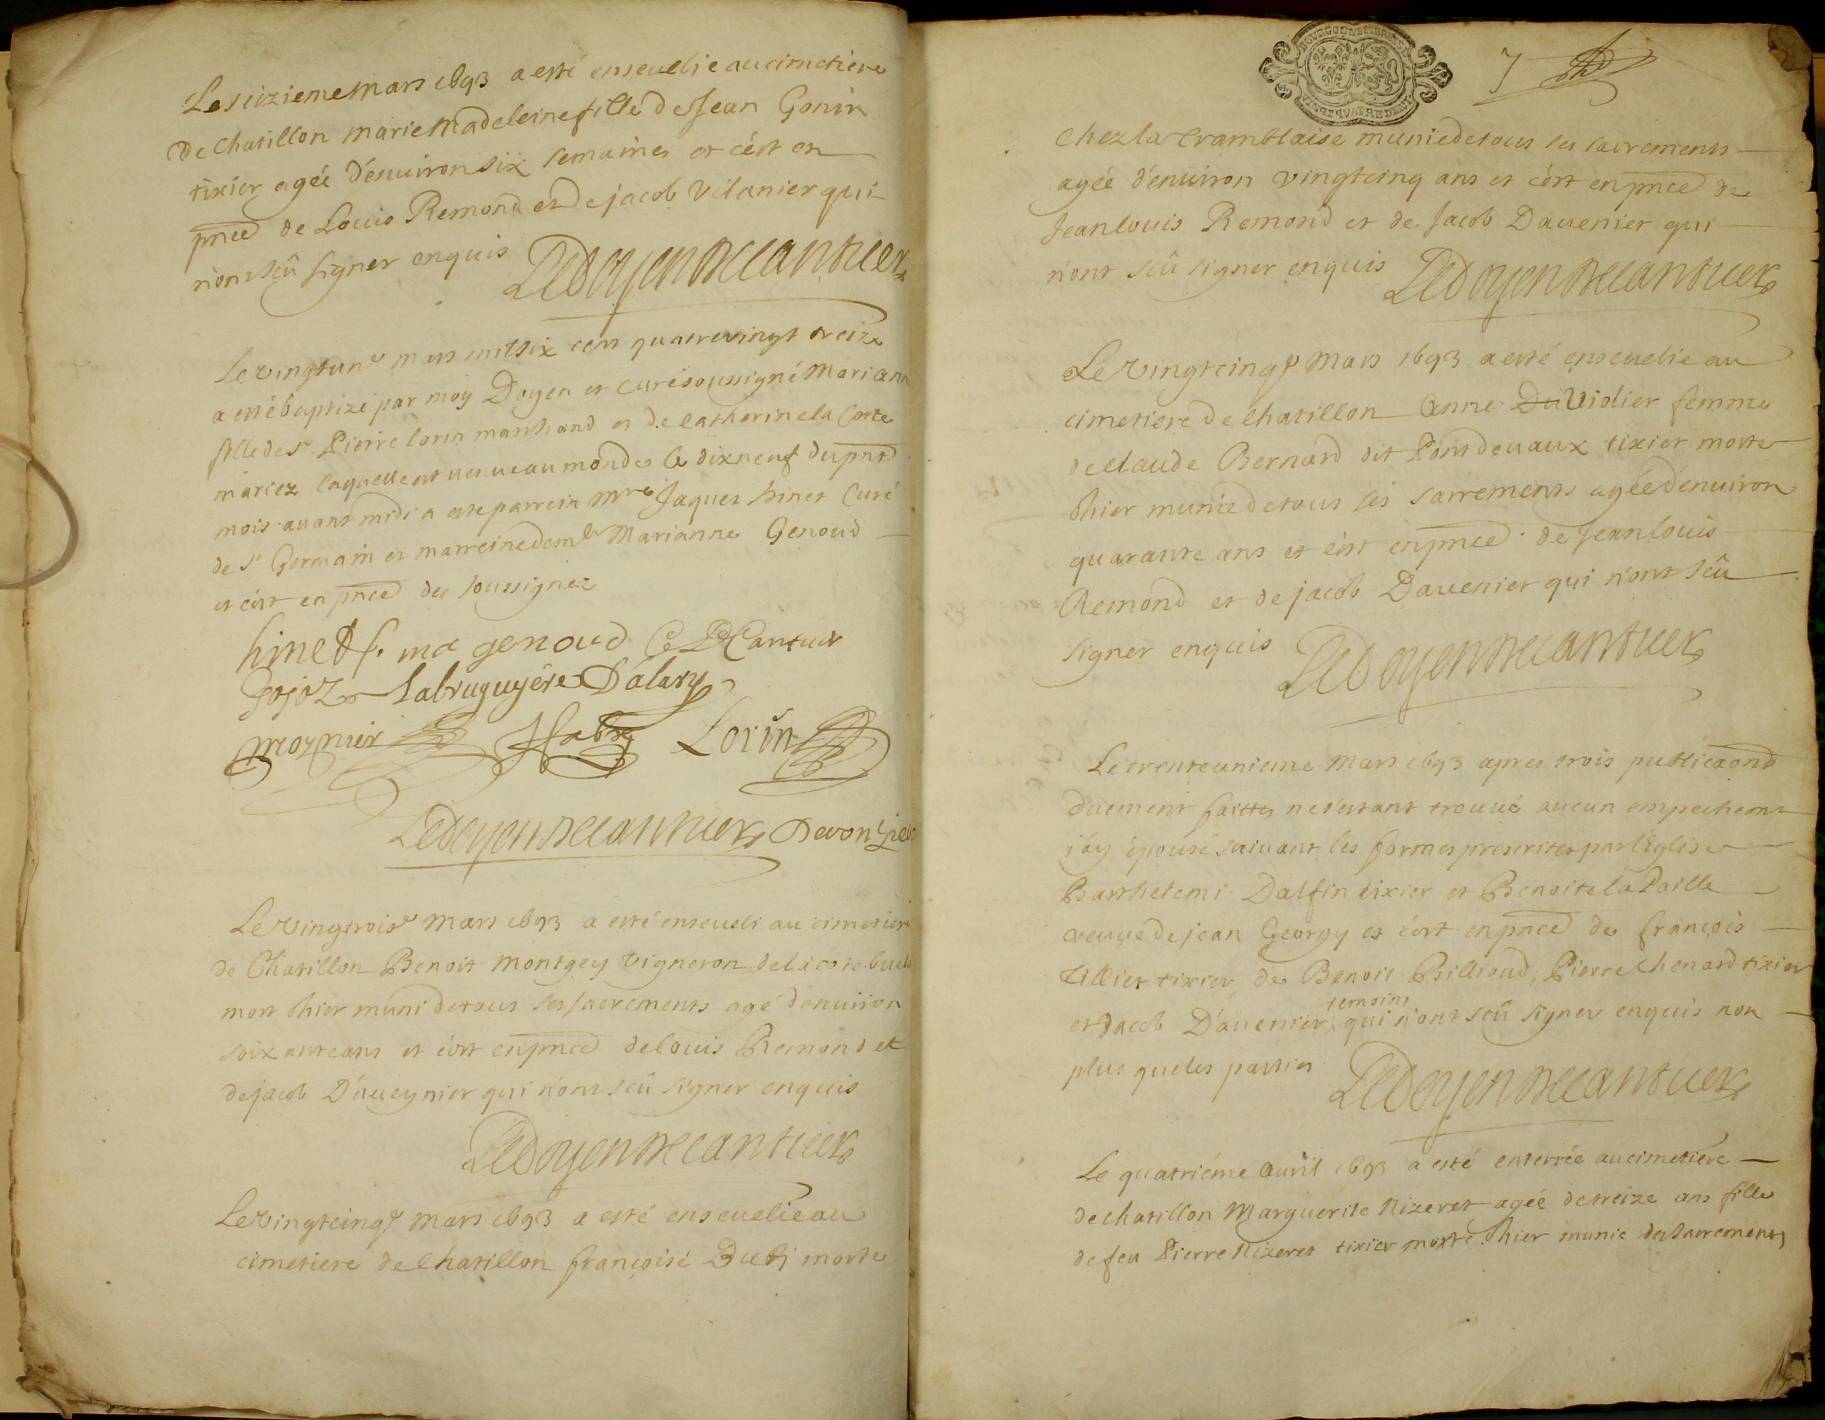 Le seizieme mars 1693 a esté enseuelie au cimetiere
de Chatillon marie Madeleine fille de Jean Gonin
tixier agée d'enuiron six semaines et c'est en
pnce de Louis Remond et de jacob Vilanier qui
n'ont sçû signer enquis Le doyen Decantuer
Le vingtun^e mars mil six cens quatrevingt treize
a esté baptizé par moy Doyen et curé soussigné Mariann
fille de s^r Pierre lorin marchand et de catherine la Coste
mariez laquelle est venue au monde le dixneuf du pnt
mois auant midi a esté parrein m^re Jaques hinet Curé
de s^t Germain et marreine dem^lle Marianne Genoud
et c'est en pnce des soussignez
hinet ma genoud Decantuer
Gojoz Labruguyére Dalary
moynier Lorin
Le doyen Decantuer
Le vingtrois^e Mars 1693 a esté enseueli au cimetiere
de Chatillon Benoit Montgey Vigneron de la
mort hier muni de tous ses sacrements agé d'enuiron
soixante ans et c'est en pnce de louis Remond et
de jacob D'aueynier qui n'ont sçû signer enquis
Le doyen Decantuer
Le vingtcinq^e Mars 1693 a esté enseuelie au
cimetiere de Chatillon françoise Duti morte
BOURGOGNE BRESSE
7
chez la Tramblaise munie de tous ses sacrements
agée d'enuiron vingtcinq ans et c'est en pnce de
Jean louis Remond et de Jacob Dauenier qui
n'ont sçû signer enquis Le doyen Decantuer
Le Vingtcinq^e Mars 1693 a esté enseuelie au
cimetiere de Chatillon Anne Du Vidier femme
de claude Bernard dit Pondeuaux tixier morte
hier munie de tous ses sacrements agée d'enuiron
quarante ans et c'est en pnce de Jean louis
Remond et de jacob Dauenier qui n'ont sçû
signer enquis Le doyen Decantuer
Le trente unieme Mars 1693 apres trois publicaons
duement faittes ne s'estant trouué aucun empechemt
j'ay épousé suiuant les formes prescrites par l'Eglise
Barthelemi Dalfin tixier et Benoite la Paille
veuue de jean Georgy et c'est en pnce de françois
tillier tixier, de Benoit Billioud, Pierre chenard tixier
temoins
et Jacob D'auenier qui n'ont sçû signer enquis non
plus que les parties Le doyen Decantuer
Le quatriéme auril 1693 a esté enterrée au cimetiere
de chatillon Marguerite Nizeret agée de treize ans fille
de feu Pierre Nizeret tixier morte hier munie des sacrements